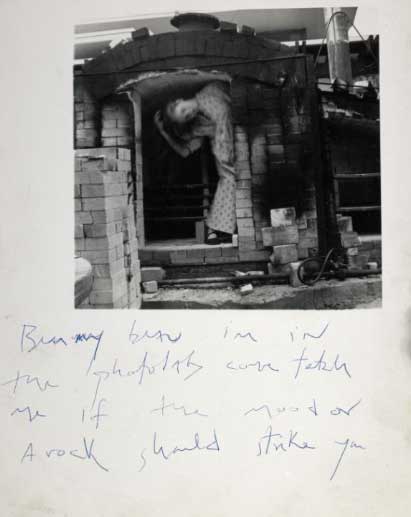 Bunny im in
the photolab come fetch
me if the mood or
A rock should strike you